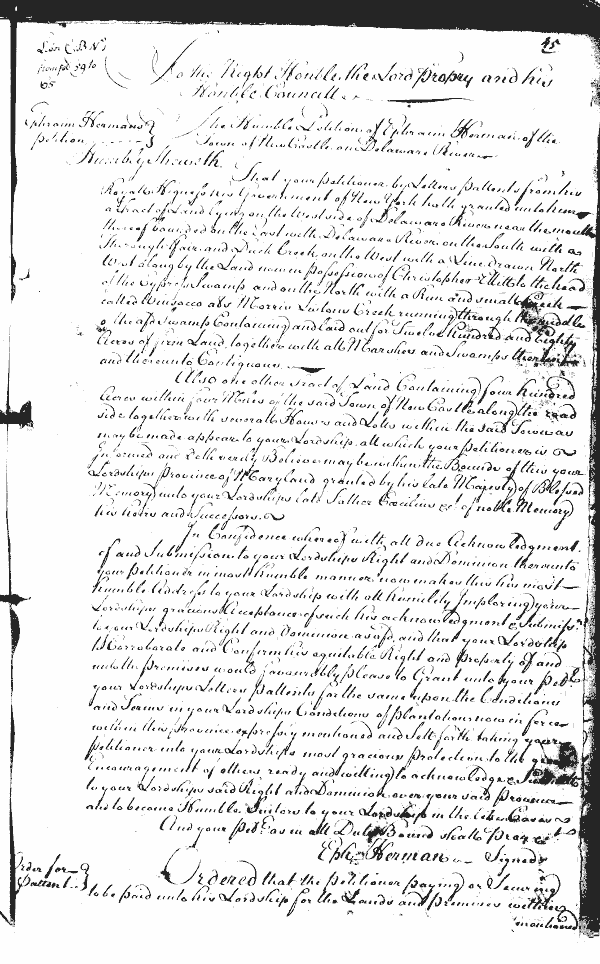 45
Lib: C B No
from fol 59 to
65
To the Right Honble. the Lord Propry and his
Honble Councell
Ephraim Hermans
petition
The Humble Petition of Ephraim Herman of the
Town of New Castle on Delaware River
Humbly Sheweth
That your petitioner by Letters pattents from his
Royall Highness his Government of New York hath granted unto him
a Tract of Land lying on the West side of Delaware River near the mouth
thereof bounded on the East with Delaware River on the South with a
Thorough fair and Duck Creek on the West with a Line drawn North
West along by the Land now in possession of Christopher Ellitt to the head
of the Cypress Swamp and on the North with a Run and small Creek
called Winsacco als Morris Listons Creek running through the middle
o the afd Swamp Containing and laid out for Twelve hundred and Eighty
Acres of firm Land, together with all Marshes and Swamps therein
and thereunto Contiguous
Also one other Tract of Land Containing four hundred
Acres within four Miles of the said Town of New Castle along the road
side together with severall Houses and Lotts within the said Town as
may be made appear to your Lordship, all which your petitioner is
Informed and doth verily Believe may be within the Bounds of this your
Lordships Province of Maryland granted by his late Majesty of Blessed
Memory unto your Lordships late Father Cecilius &c of noble Memory
his heirs and Successors
In Confidence whereof with all due Acknowledgment
of and Submission to your Lordships Right and Dominion thereunto
your Petitioner in most humble manner now makes this his most
humble Address to your Lordship with all humility Imploring your
Lordships gracious Acceptance of such his acknowledgment & Submiss:n
to your Lordships Right and Dominion as afd, and that your Lordship
to Corroborate and Confirm his equitable Right and Property of and
unto the premisses would favourably please to Grant unto your Petr
your Lordships Letters Pattents for the same upon the Conditions
and Terms in your Lordships Conditions of plantations now in force
within this province expressly mentioned and sett forth taking your
petitioner into your Lordships most gracious Protection to the great
Encouragement of others ready and willing to acknowledge &
to your Lordships said Right and Dominion over your said Province
and to become Humble Suitors to your Lordship in the like Cases
And your Petr as in all Duty Bound shall Pray &c
Eph: Herman Signed
Order for
Pattent
Ordered that the petitioner paying or Securing
to be paid unto his Lordship for the Lands and Premises within
mentioned